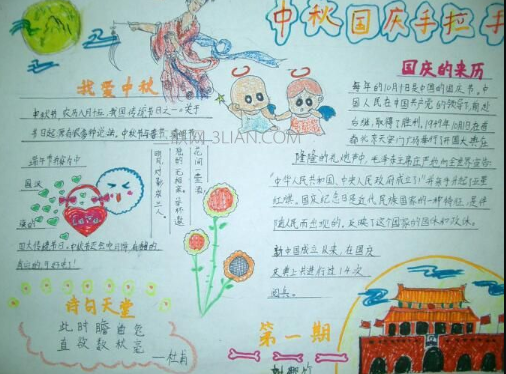 中秋国庆手拉手
我爱中秋
中秋节,农历八月十五,我国传统节日之一。关于
节日起源有很多种说法,中秋节与春节、清明节、
端午节并称为中
国汉
族的
四大传统节日。
花间一壶酒,
对影成三人。
3LIAN.COM
国庆的来历
每年的10月1日是中国的国庆节。中
国人民在中国共产党的领导下,前赴
后继,取得了胜利。1949年10月1日在首
都北京天安门广场举行开国大典在
隆隆的礼炮声中,毛泽东主席庄严的向全世界宣告:
"中华人民共和国,中央人民政府成立了!"并亲手升起了五星
红旗。国庆纪念日是近代民族国家的一种特征,是伴
随
而出现的,反映了这个国家的国体和政体。
新中国成立以来,在国庆
庆典上共进行过14次
阅兵。
诗句天堂
此时瞻白兔
直欲数秋毫
——杜甫
第一期